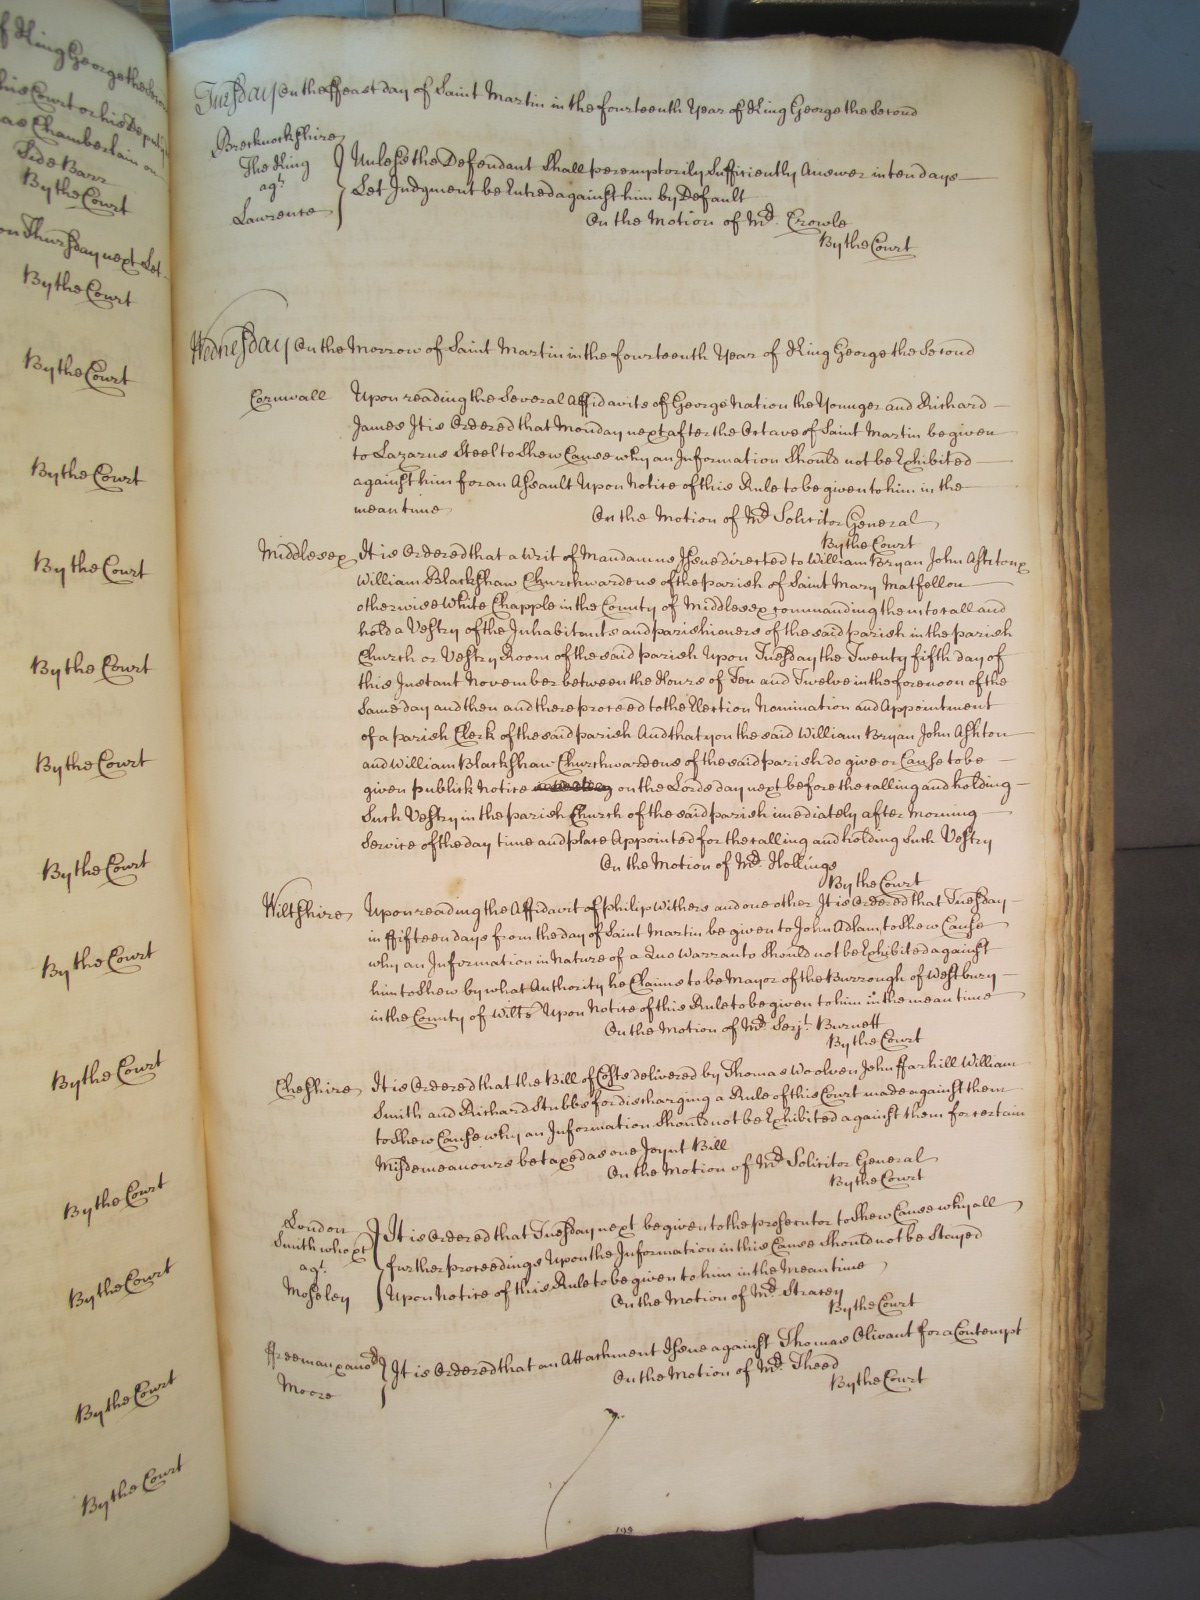 f King George the Second
his Court or his Deputy
as Chamberlain on
Side Barr
By the Court
on Thursday next Let
By the Court
By the Court
By the Court
By the Court
By the Court
By the Court
By the Court
By the Court
By the Court
By the Court
By the Court
By the Court
By the Court
Tuesday On the ffeast day of Saint Martin in the fourteenth Year of King George the Second
Brecknockshire
The King
agt
Lawrence
Unless the Defendant Shall peremptorily Sufficiently Answer in ten days
Let Judgment be Entred against him by Default
On the Motion of Mr. Crowle
By the Court
Wednesday On the Morrow of Saint Martin in the fourteenth Year of King George the Second
Cornwall Upon reading the Several Affidavits of George Nation the Younger and Richard
James It is Ordered that Monday next after the Octave of Saint Martin be given
to Lazarus Steel to Shew Cause why an Information Should not be Exhibited
against him for an Assault Upon Notice of this Rule to be given to him in the
mean time On the Motion of Mr Solicitor General
By the Court
Middlesex It is Ordered that a Writ of Mandamus Issue directed to William Bryan John Ashton &
William Blackshaw Churchwardens of the parish of Saint Mary Matfellon
otherwise White Chapple in the County of Middlesex commanding them to call and
hold a Vestry of the Inhabitants and parishioners of the said parish in the parish
Church or Vestry Room of the said parish Upon Tuesday the Twenty fifth day of
this Instant November between the Hours of Ten and Twelve in the forenoon of the
Same day and then and there proceed to the Election Nomination and Appointment
of a parish Clerk of the said parish And that you the said William Bryan John Ashton
and William Blackshaw Churchwardens of the said parish do give or Cause to be
given publick Notice on the Lords day next before the calling and holding
Such Vestry in the parish Church of the said parish imediately after Morning
Service of the day time and place Appointed for the calling and holding Such Vestry
On the Motion of Mr. Hollings
By the Court
Wiltshire Upon reading the Affidavit of philip Withers and one other It is Ordered that Tuesday
in ffifteen days from the day of Saint Martin be given to John Adlam to Shew Cause
why an Information in Nature of a Quo Warranto Should not be Exhibited against
him to Shew by what Authority he Claims to be Mayor of the Burrough of Westbury
in the County of Wilts Upon Notice of this Rule to be given to him in the mean time
On the Motion of Mr. Serjt. Burnett
By the Court
Cheshire It is Ordered that the Bill of Costs delivered by Thomas Woolven John ffarhill William
Smith and Richard Stubbs for discharging a Rule of this Court made against them
to Shew Cause why an Information Should not be Exhibited against them for certain
Misdemeanours be taxed as one Joynt Bill
On the Motion of Mr Solicitor General
By the Court
London
Smith who &c
agt.
Moseley
It is Ordered that Tuesday next be given to the prosecutor to Shew Cause why all
further proceedings Upon the Information in this Cause Should not be Stayed
Upon Notice of this Rule to be given to him in the Mean time
On the Motion of Mr. Stracey
By the Court
ffreeman &
Moore
It is Ordered that an Attachment Issue against Thomas Olivant for a Contempt
On the Motion of Mr. Theed
By the Court